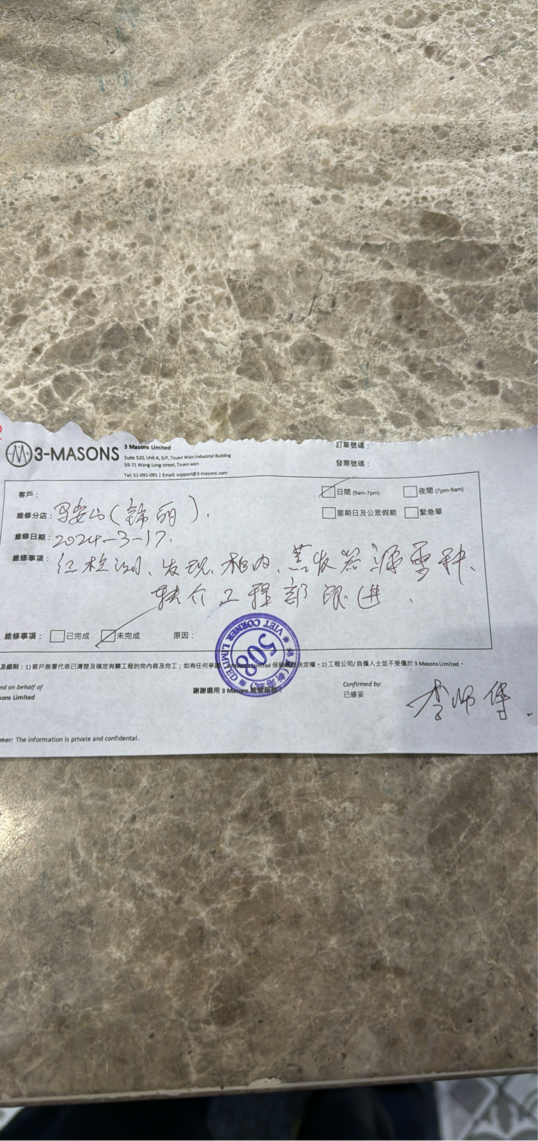 3-MASONS
3 Masons Limited
Suite 520, Unit A, 5/F, Tsuen Wan Industrial Building
59-71 Wang Lung street, Tsuen wan
Tel: 51-091-091 | Email: support@3-masons.com
訂單號碼：
發票號碼：
客戶：
日間 (9am-7pm)
夜間 (7pm-9am)
維修分店：馬鞍山(錦丽).
星期日及公眾假期
緊急單
維修日期：2024-3-17.
維修事項：红检测、发现相内、蒸发器漏雪种.
转介工程部跟進.
維修事項：
已完成
未完成
原因：
及細則：1) 客戶簽署代表已清楚及確定有關工程的完内容及完工；如有任何爭議 3 Masons Limited 保留最終決定權。2) 工程公司/自僱人士並不受僱於 3 Masons Limited。
VIET CORNER LIMITED
508
rd on behalf of
sons Limited
謝謝選用 3 Masons 維修服務！
Confirmed by:
已修妥
李师傅.
mer: The information is private and confidential.